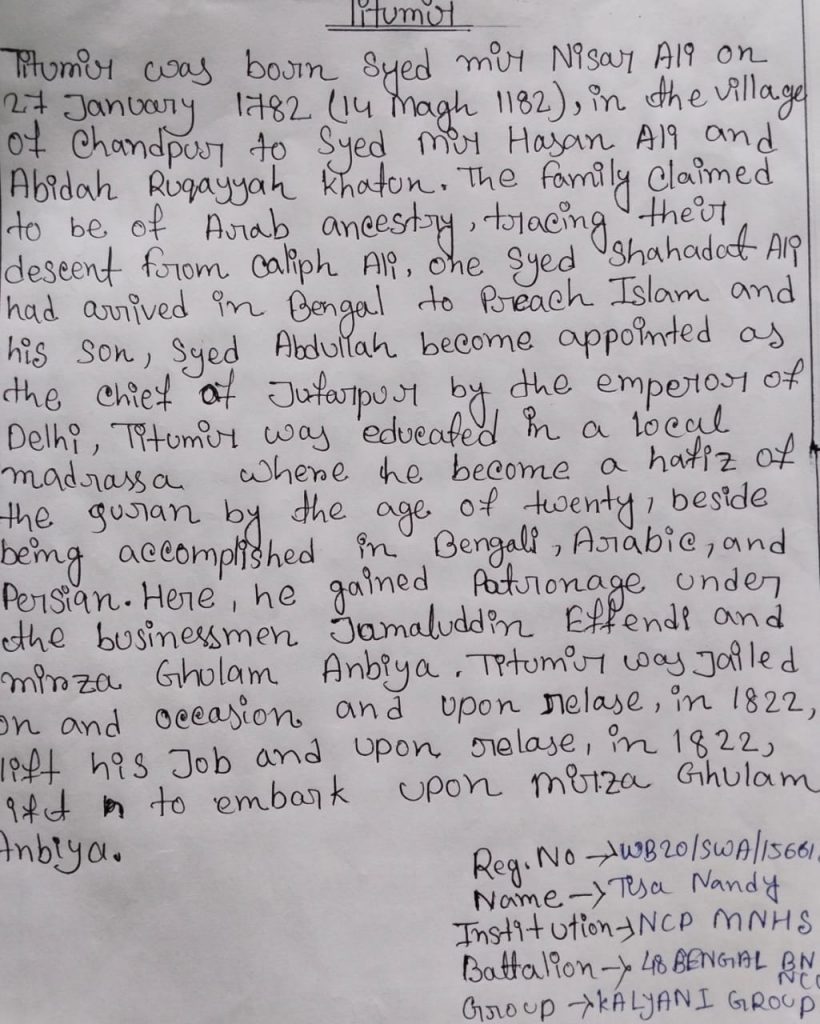 Titumir
Titumir was born Syed mir Nisar Ali on
27 January 1782 (14 Magh 1182), in the village
of Chandpur to Syed mir Hasan Ali and
Abidah Ruqayyah Khaton. The family claimed
to be of Arab ancestry, tracing their
descent from caliph Ali, one Syed Shahadat Ali
had arrived in Bengal to Preach Islam and
his son, Syed Abdullah become appointed as
the chief of Jufarpur by the emperor of
Delhi, Titumir was educated in a local
madrassa where he become a hafiz of
the quran by the age of twenty, beside
being accomplished in Bengali, Arabic, and
Persian. Here, he gained Patronage under
the businessmen Jamaluddin Effendi and
mirza Ghulam Anbiya. Titumir was Jailed
on and occasion and upon relase, in 1822,
lift his Job and upon relase, in 1822,
to embark upon mirza Ghulam
Anbiya.
Reg. No → WB20/SWA/15661
Name → Tisa Nandy
Institution → NCP MNHS
Battalion → 48 BENGAL BN
NCC
Group → KALYANI GROUP